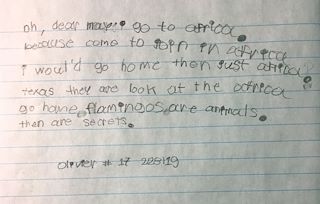 oh, dear maye: i go to africa.
because come to join in africa
i would go home then just africa.
texas they are look at the africa
go home, flamingos are animals.
then are secrets.
olivier # 17